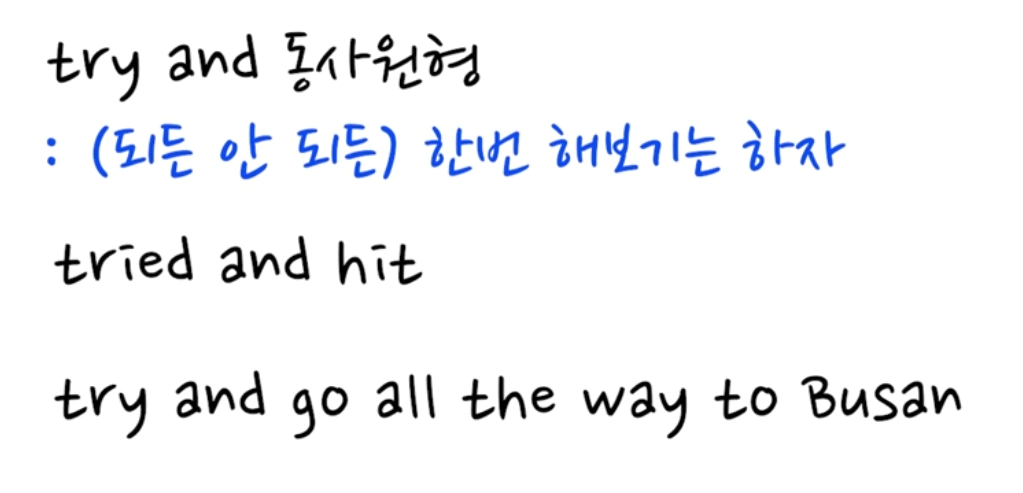 try and 동사원형
: (되든 안 되든) 한번 해보기는 하자
tried and hit
try and go all the way to Busan